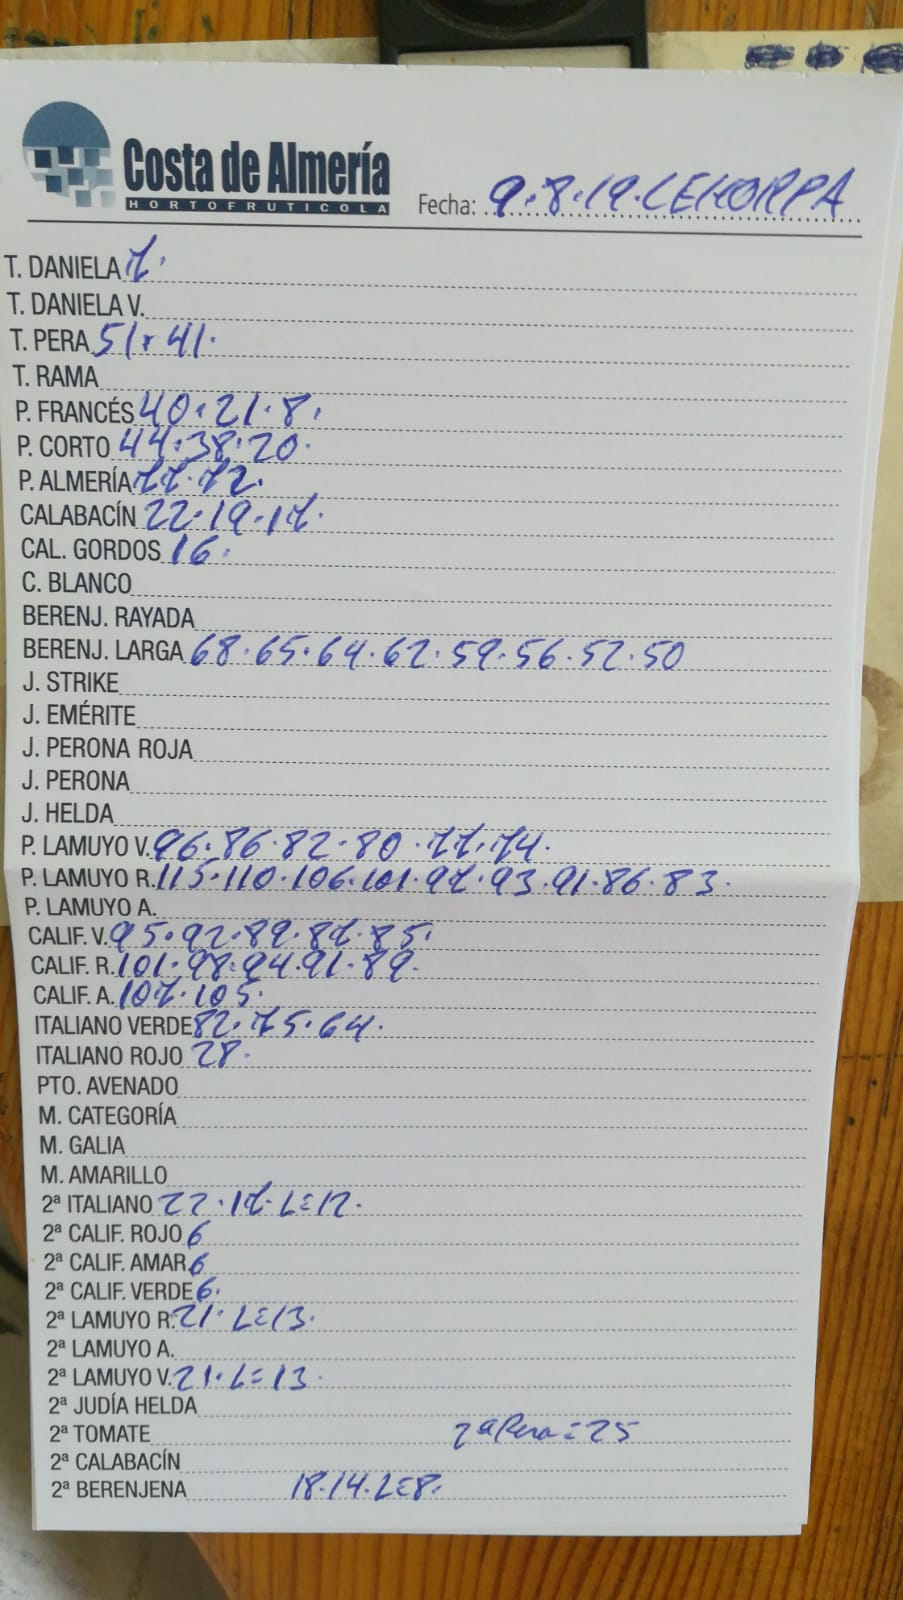 Costa de Almería
HORTOFRUTICOLA
Fecha: 9.8.19. CEHORPA
T. DANIELA 7.
T. DANIELA V.
T. PERA 51. 41.
T. RAMA
P. FRANCÉS 40. 21. 8.
P. CORTO 44. 38. 20.
P. ALMERÍA 77. 72.
CALABACÍN 22. 19. 17.
CAL. GORDOS 16.
C. BLANCO
BERENJ. RAYADA
BERENJ. LARGA 68. 65. 64. 62. 59. 56. 52. 50
J. STRIKE
J. EMÉRITE
J. PERONA ROJA
J. PERONA
J. HELDA
P. LAMUYO V. 96. 86. 82. 80. 77. 74.
P. LAMUYO R. 115. 110. 106. 101. 97. 93. 91. 86. 83.
P. LAMUYO A.
CALIF. V. 95. 92. 89. 87. 85.
CALIF. R. 101. 98. 94. 91. 89.
CALIF. A. 107. 105.
ITALIANO VERDE 82. 75. 64.
ITALIANO ROJO 28.
PTO. AVENADO
M. CATEGORÍA
M. GALIA
M. AMARILLO
2ª ITALIANO 22. 17. L=12.
2ª CALIF. ROJO 6
2ª CALIF. AMAR. 6
2ª CALIF. VERDE 6.
2ª LAMUYO R. 21. L=13.
2ª LAMUYO A.
2ª LAMUYO V. 21. L=13.
2ª JUDÍA HELDA
2ª TOMATE 2ª Pera = 25
2ª CALABACÍN
2ª BERENJENA 18. 14. L=8.